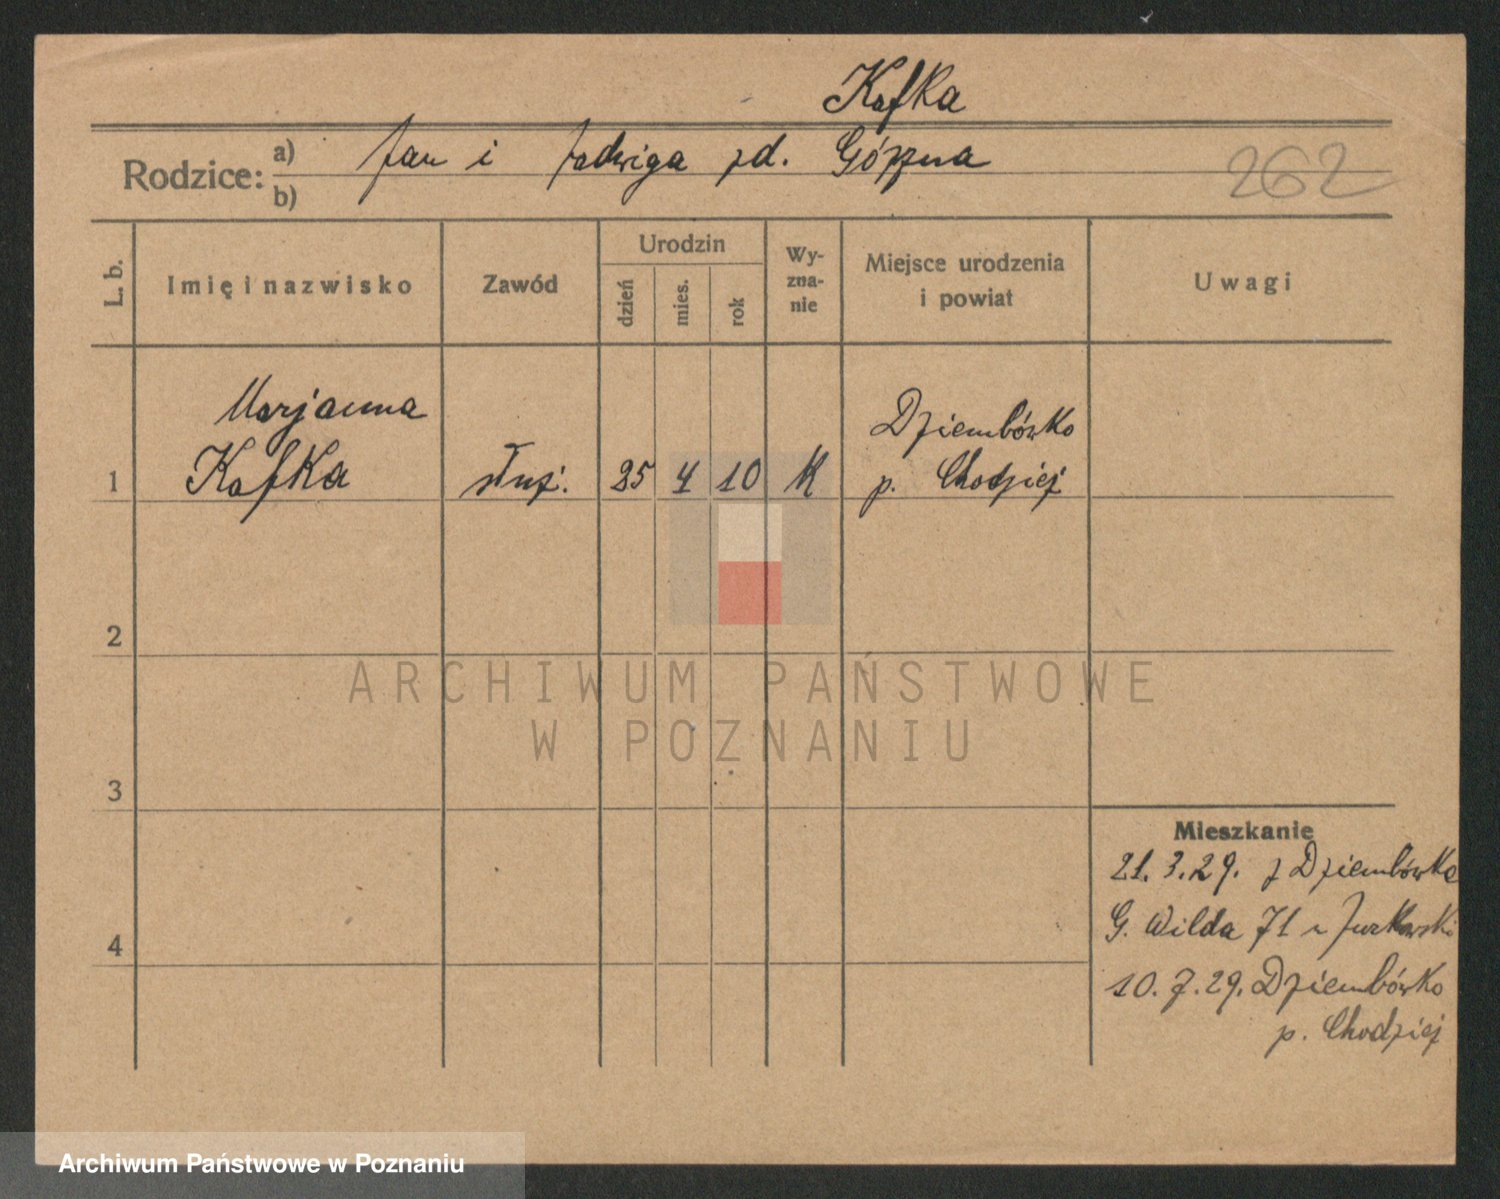 Kafka
Rodzice: a) Jan i Jadwiga zd. Górzna
b)
262
L. b.
Imię i nazwisko
Zawód
Urodzin
dzień
mies.
rok
Wy-
zna-
nie
Miejsce urodzenia
i powiat
Uwagi
Marjanna
Kafka
1
służ.
25
4
10
K
Dziembówko
p. Chodzież
2
3
4
Mieszkanie
21. 3. 29. z Dziembówka
G. Wilda 71 u Jurkowski
10. 7. 29. Dziembówko
p. Chodzież
ARCHIWUM PAŃSTWOWE
W POZNANIU
Archiwum Państwowe w Poznaniu